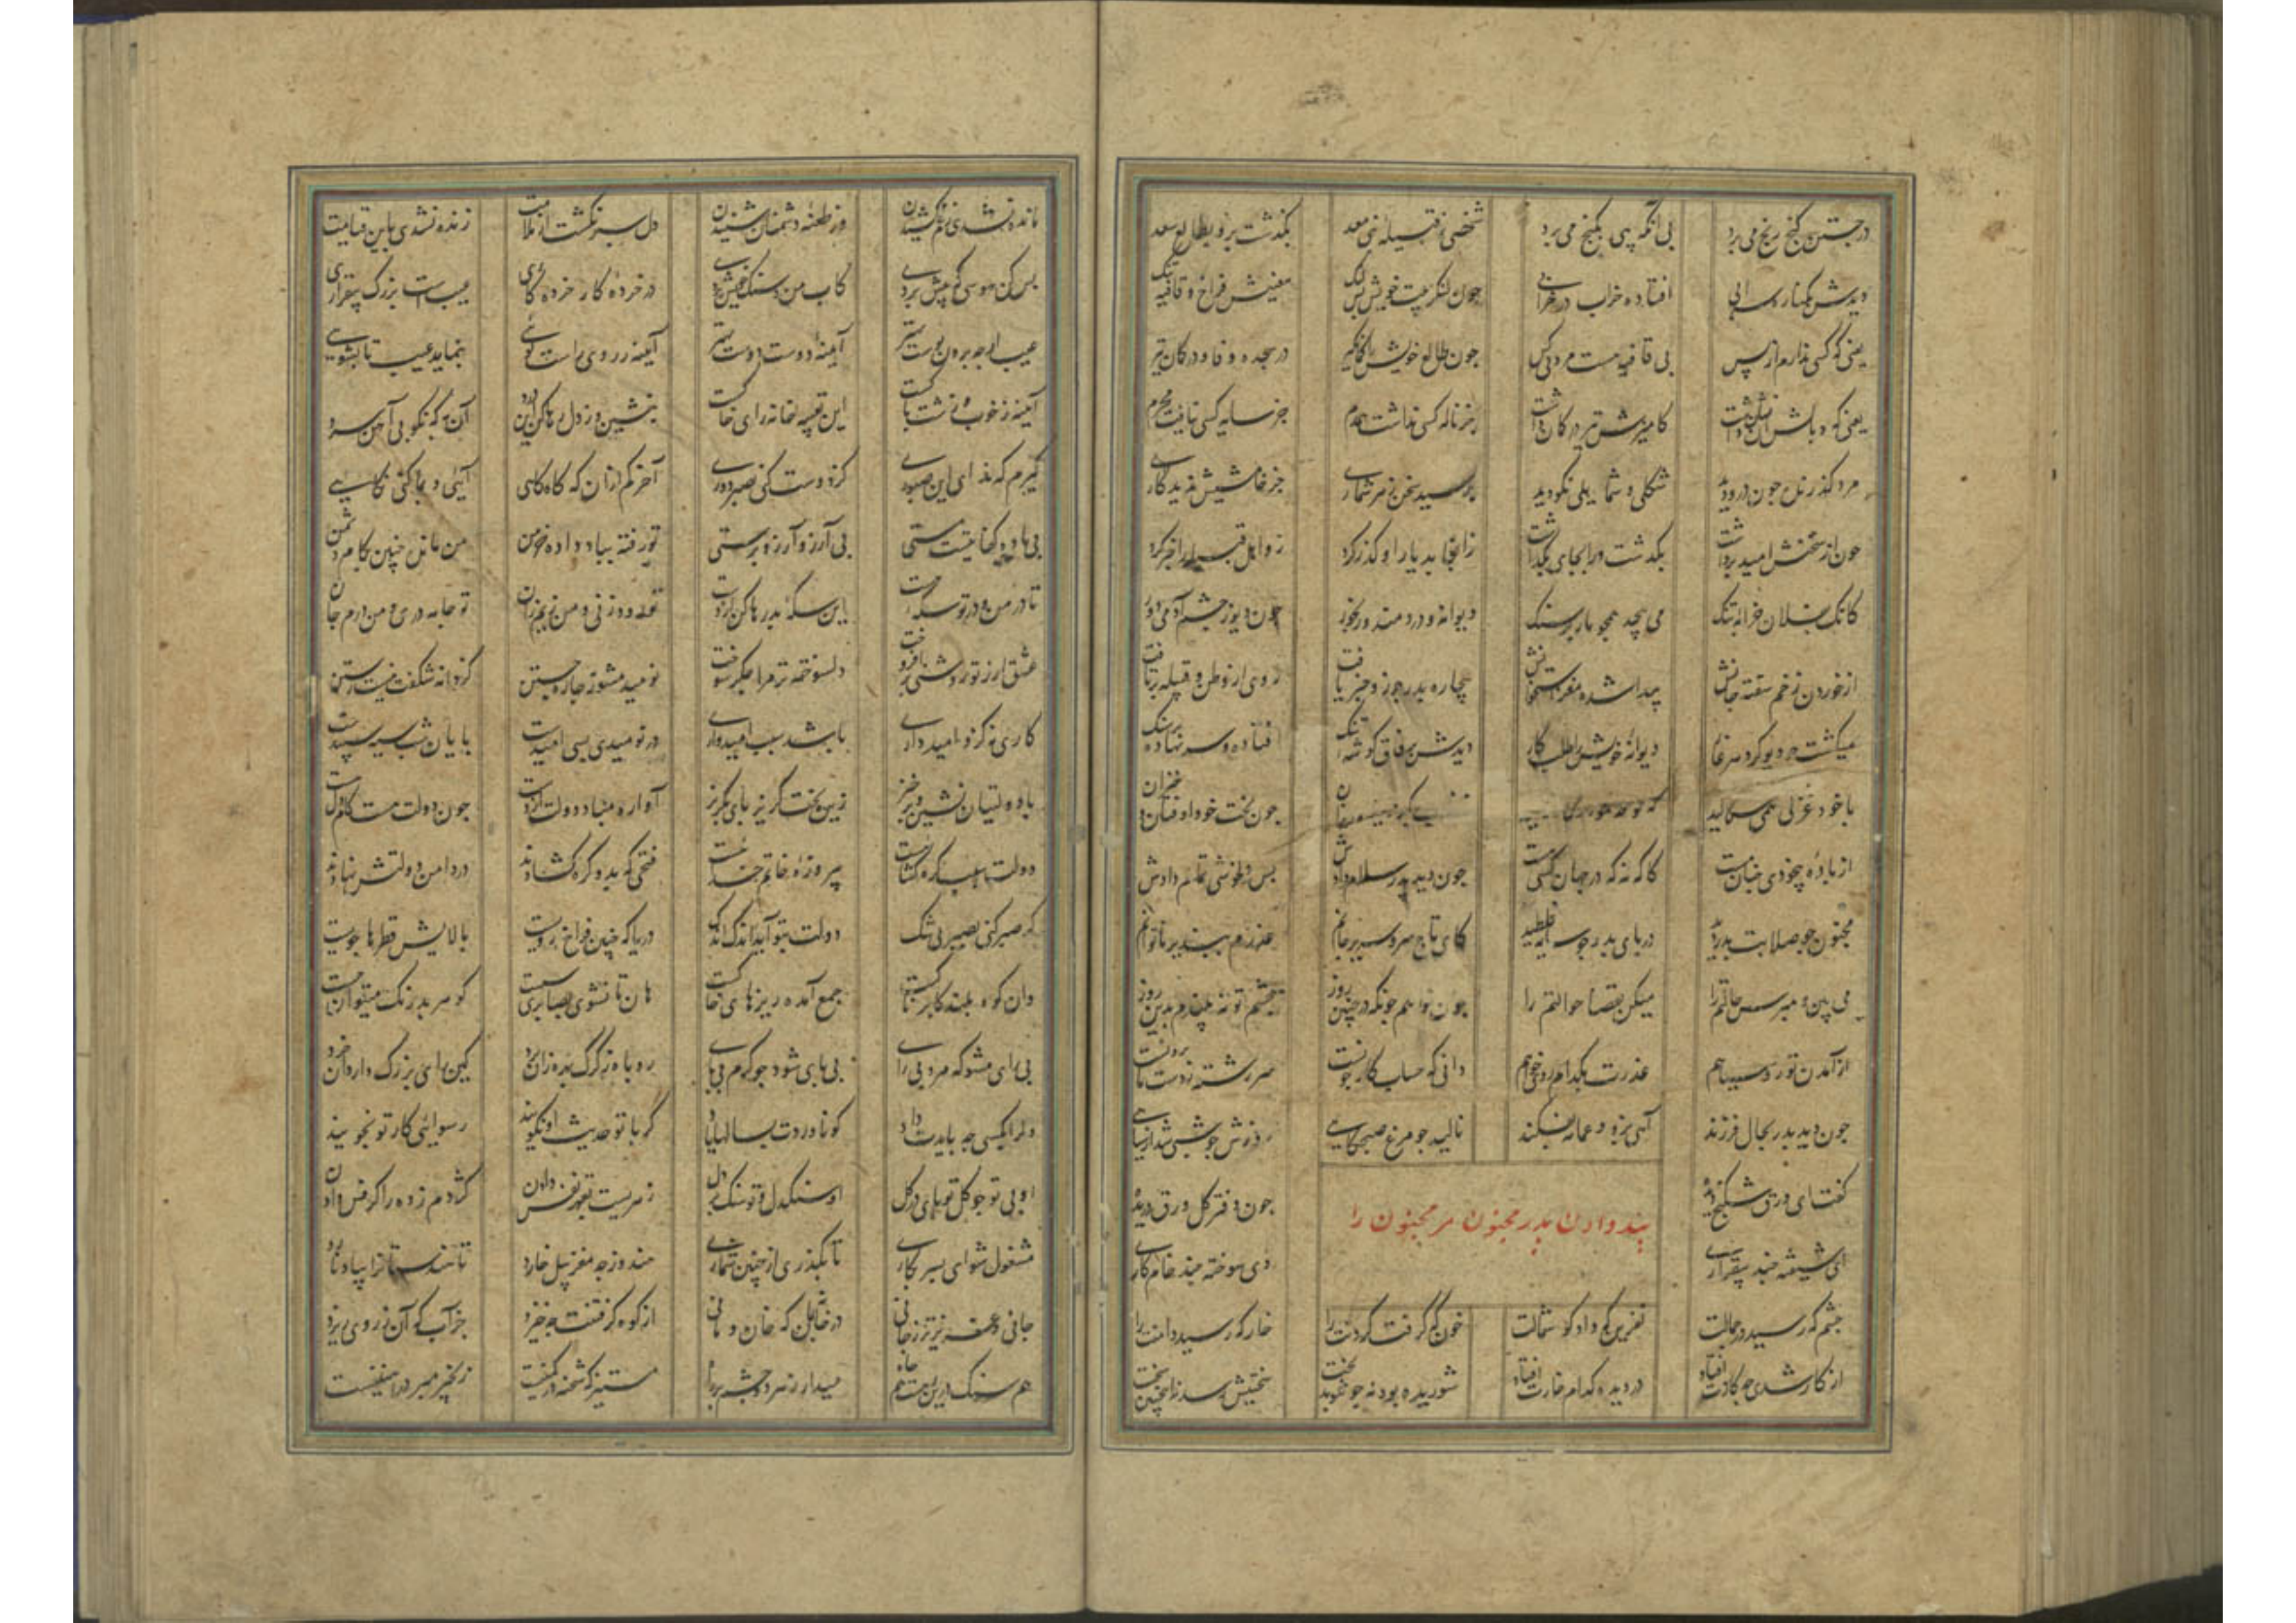 در جستن گنج رنج می برد بی آنکه پی بگنج می برد شخصی ز قبیله بنی سعد بگذشت برو بطالع سعد
دیدش بکناره سرابی افتاده خراب در خرابی چون لنگر بیت خویش لنگ معنیش فراخ و قافیه تنگ
یعنی که کسی ندارم از پس بی قافیه هست مرد بی کس چون طالع خویش در سجده و کمان تیر
یعنی که وبالش آن نشان داشت کامیزش تیر در کمان داشت جز ناله کسی نداشت همدم جز سایه کسی نیافت محرم
مرد گذرنده چون درو دید شکلی و شمایلی نکو دید پرسید سخن ز هر شماری جز خامشیش ندید کاری
چون از سخنش امید برداشت بگذشت ورا بجای بگذاشت زانجا بدیار او گذر کرد زو اهل قبیله را خبر کرد
کانک بفلان خرابه تنگ می پیچد همچو مار بر سنگ دیوانه و دردمند و رنجور چون دیو ز چشم آدمی دور
از خوردن زخم سفته جانش پیدا شده مغز استخوانش بیچاره پدر چو زو خبر یافت روی از وطن و قبیله برتافت
میگشت چو دیو گرد هر غار دیوانه خویش را طلب کار دیدش برفاق گوشه تنگ افتاده و سر نهاده بر سنگ
با خود غزلی همی سگالید چون بخت خود اوفتان و خیزان
از باده بیخودی چنان مست کاگه نه که در جهان کسی هست چون دید پدر سلام دادش پس دلخوشی تمام دادش
مجنون چو صلابت پدر دید در پای پدر چو سایه غلطید کای تاج سر و سریر جانم عذرم بپذیر ناتوانم
می بین و مپرس حالتم را میکن بقضا حوالتم را چون خواهم چونکه در چنین روز چشم تو بیندم بدین روز
از آمدن تو روسیاهم عذرت بکدام رو بخواهم دانی که حساب کار چونست سر رشته ز دست ما برونست
چون دید پدر بحال فرزند آهی بزد و عمامه بفکند نالید چو مرغ صبحگاهی روزش چو شبی شد از سیاهی
گفت ای ورق شکنج دیده چون دفتر گل ورق دریده
پند دادن پدر مجنون مر مجنون را
ای شیفته چند بیقراری وی سوخته چند خام کاری
چشم که رسید در جمالت نفرین که داد گوشمالت خون که گرفت گردنت را خار که رسید دامنت را
از کار شدی چه کارت افتاد در دیده کدام خارت افتاد شوریده بود نه چو تو بدبخت سختیش رسد نه اینچنین سخت
مانده نشدی ز غم کشیدن وز طعنه دشمنان شنیدن دل سیر نگشت از ملامت زنده نشدی باین قیامت
بس کن هوسی که پیش بردی کاب من و سنگ خویش بردی در خرده کار خرده کاری عیب است بزرگ بیقراری
عیب ارچه برون پوست بهتر آینه دوست دوست بهتر آینه ز روی راست گویی بنماید عیب تا بشویی
آینه ز خوب و زشت این تعبیه خانه زای خاکست بنشین و ز دل رها کن این آن به که نکوبی آهن سرد
گیرم که نداری این صبوری کز دوست کنی بصبر دوری آخر کم از آن که گاه گاهی آیی و بما کنی نگاهی
بی باده کفایتست مستی بی آرزو آرزو پرستی تو رفته بباد داده خرمن من مانده چنین بکام دشمن
تا در من و در تو سکه هست این سکه بد رها کن از دست تو رود زنی و من زنم ران تو جامه دری و من درم جان
عشق ار ز تو روشنی برافروخت دلسوخته تر مرا جگر سوخت نومید مشو ز چاره جستن کز دانه شگفت نیست رستن
کاری که نه زو امید داری باشد سبب امیدواری در نومیدی بسی امیدست پایان شب سیه سپیدست
با دولتیان نشین و برخیز زین بخت گریز پای بگریز آواره مباد دولت از دست چون دولت هست کام دل هست
دولت سبب گره گشائیست پیروزه خاتم خدائیست فتحی که بدو گره گشادند در دامن دولتش نهادند
گر صبر کنی بصبر بی شک دولت بتو آید اندک اندک دریا که چنین فراخ رویست بالایش قطرها جویست
وان کوه بلند کابر ناکست جمع آمده ریزهای خاکست هان تا نشوی بصابری سست گوهر بدرنگ میتوان جست
بی رای مشو که مرد بی رای بی پای شود چو کرم بی پای روباه ز گرگ بهره زان برد کین رای بزرگ دارد آن خرد
دل را بکسی چه بایدت داد کو ناوردت بسالها یاد رسوایی کار تو نجویند
او بی تو چو گل تو پای در گل او سنگدل و تو سنگ بر دل کژدم زده را کرفس دادن
مشغول شو ای پسر بکاری تا بگذری از چنین شماری هندو ز چه مغز پیل خارد تا هندستانرا بیاد نارد
جانی و عزیزتر ز جانی در خانه بمان که خان و مانی از کوه گرفتنت چه خیزد جز آب که آن ز روی ریزد
هم سنگ درین رهست و هم چاه میدار ز هر دو چشم بر راه مستیز که شحنه در کمینست زنجیر مبر